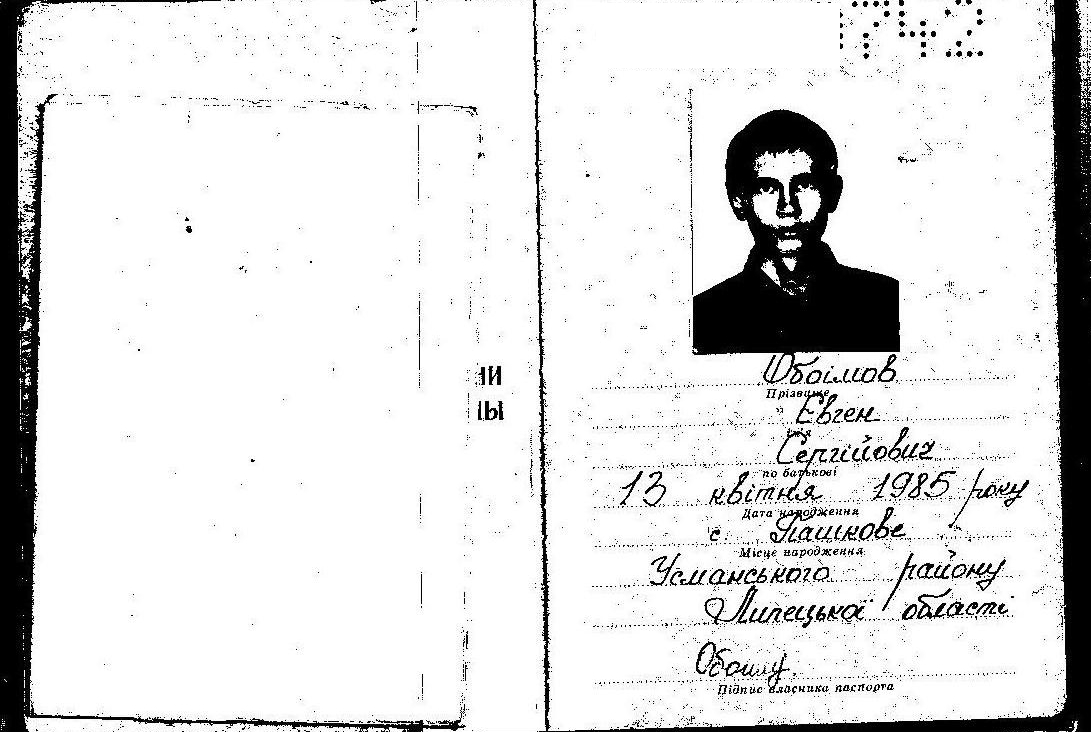 742
ни
ны
Обоімов
Прізвище
Євген
ім'я
Сергійович
по батькові
13 квітня 1985 року
Дата народження
с. Пашкове
Місце народження
Усманського району
Липецької області
Підпис власника паспорта